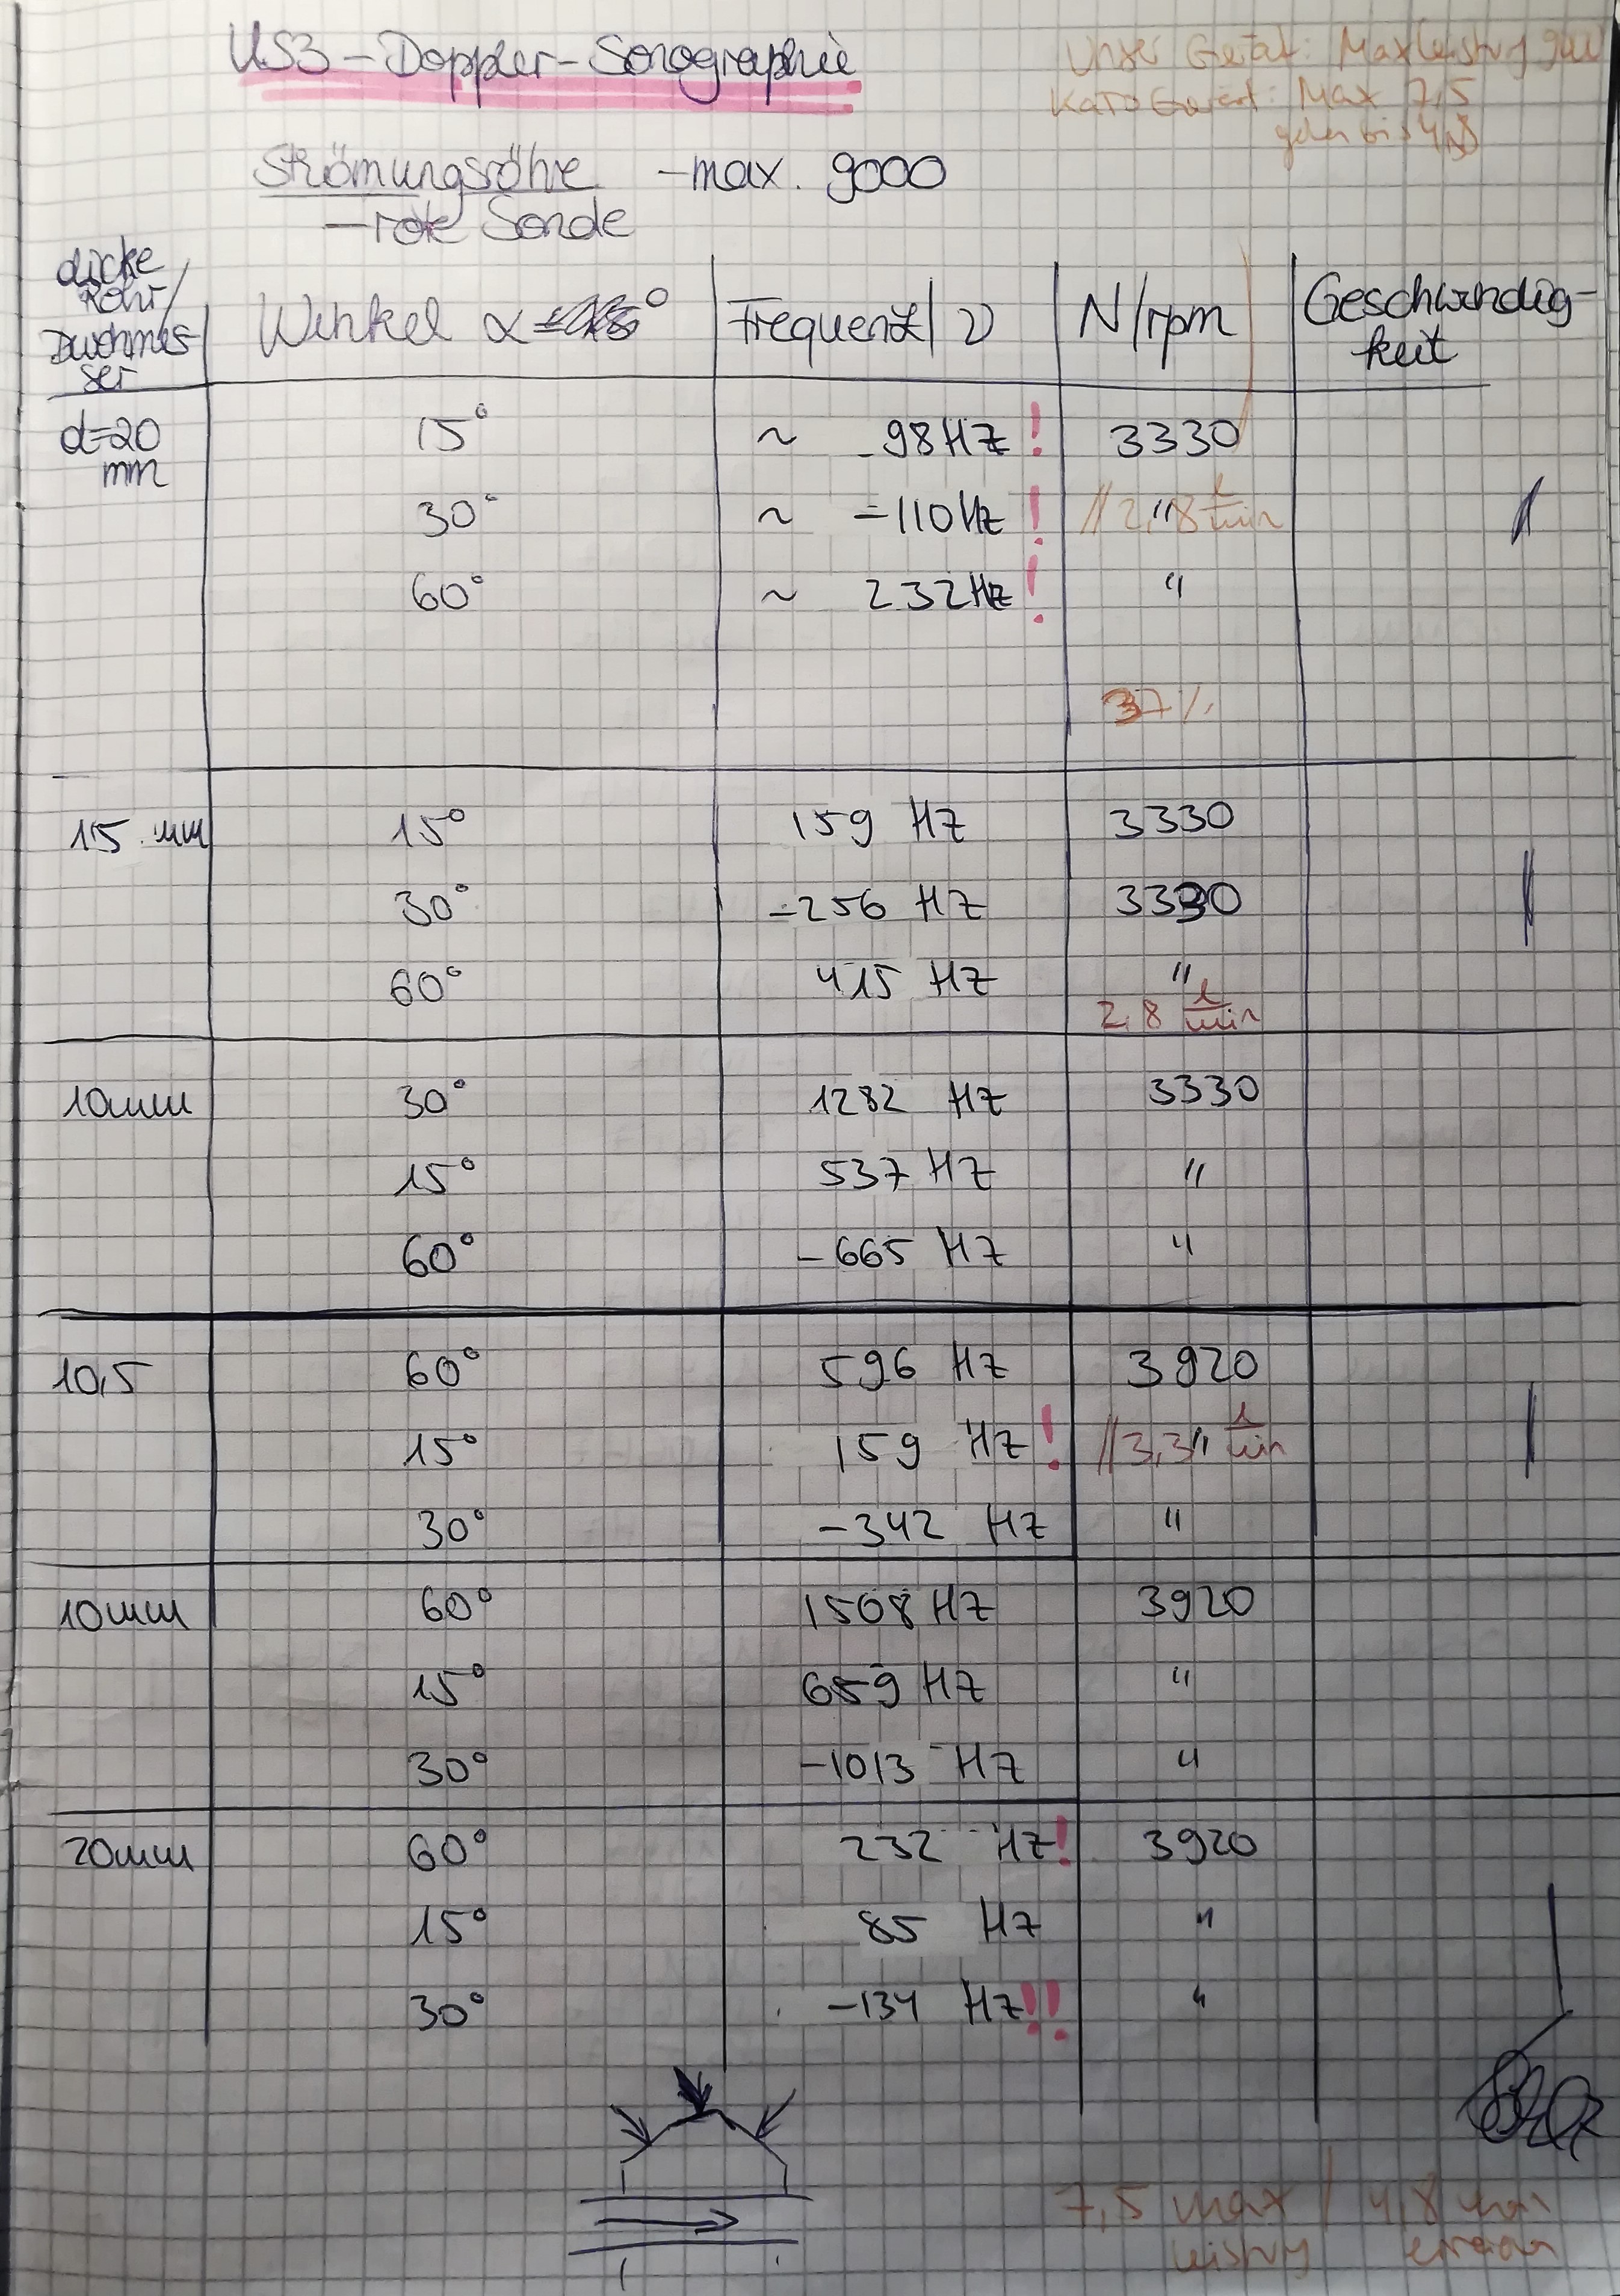 US3 - Doppler - Sonographie
Unser Gerät: Maxleistung
Gerät: Max 7,5
gehen bis 4,8
Strömungsröhre - max. 9000
- rote Sonde
dicke Rohr/ Durchmesser | Winkel α ° | Frequenz/ν | N/rpm | Geschwindigkeit
d=20 mm 15° ~ -98 Hz ! 3330
30° ~ -110 Hz ! // 2,8 l/min "
60° ~ 232 Hz ! "
37 %
15 mm 15° 159 Hz 3330
30° -256 Hz 3330
60° 415 Hz "
2,8 l/min
10mm 30° 1282 Hz 3330
15° 537 Hz "
60° -665 Hz "
10,5 60° 596 Hz 3920
15° 159 Hz ! // 3,3 l/min "
30° -342 Hz "
10mm 60° 1508 Hz 3920
15° 659 Hz "
30° -1013 Hz "
20mm 60° 232 Hz ! 3920
15° 85 Hz "
30° -134 Hz !! "
7,5 max / 4,8
leistung